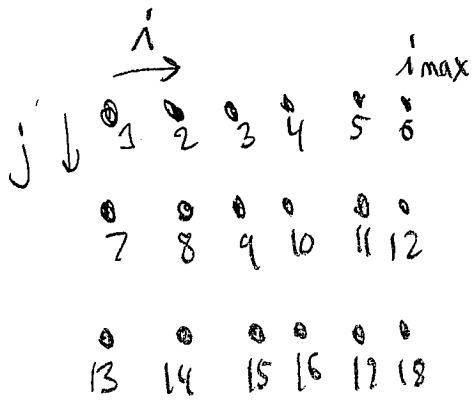 i
i max
j
1 2 3 4 5 6
7 8 9 10 11 12
13 14 15 16 17 18